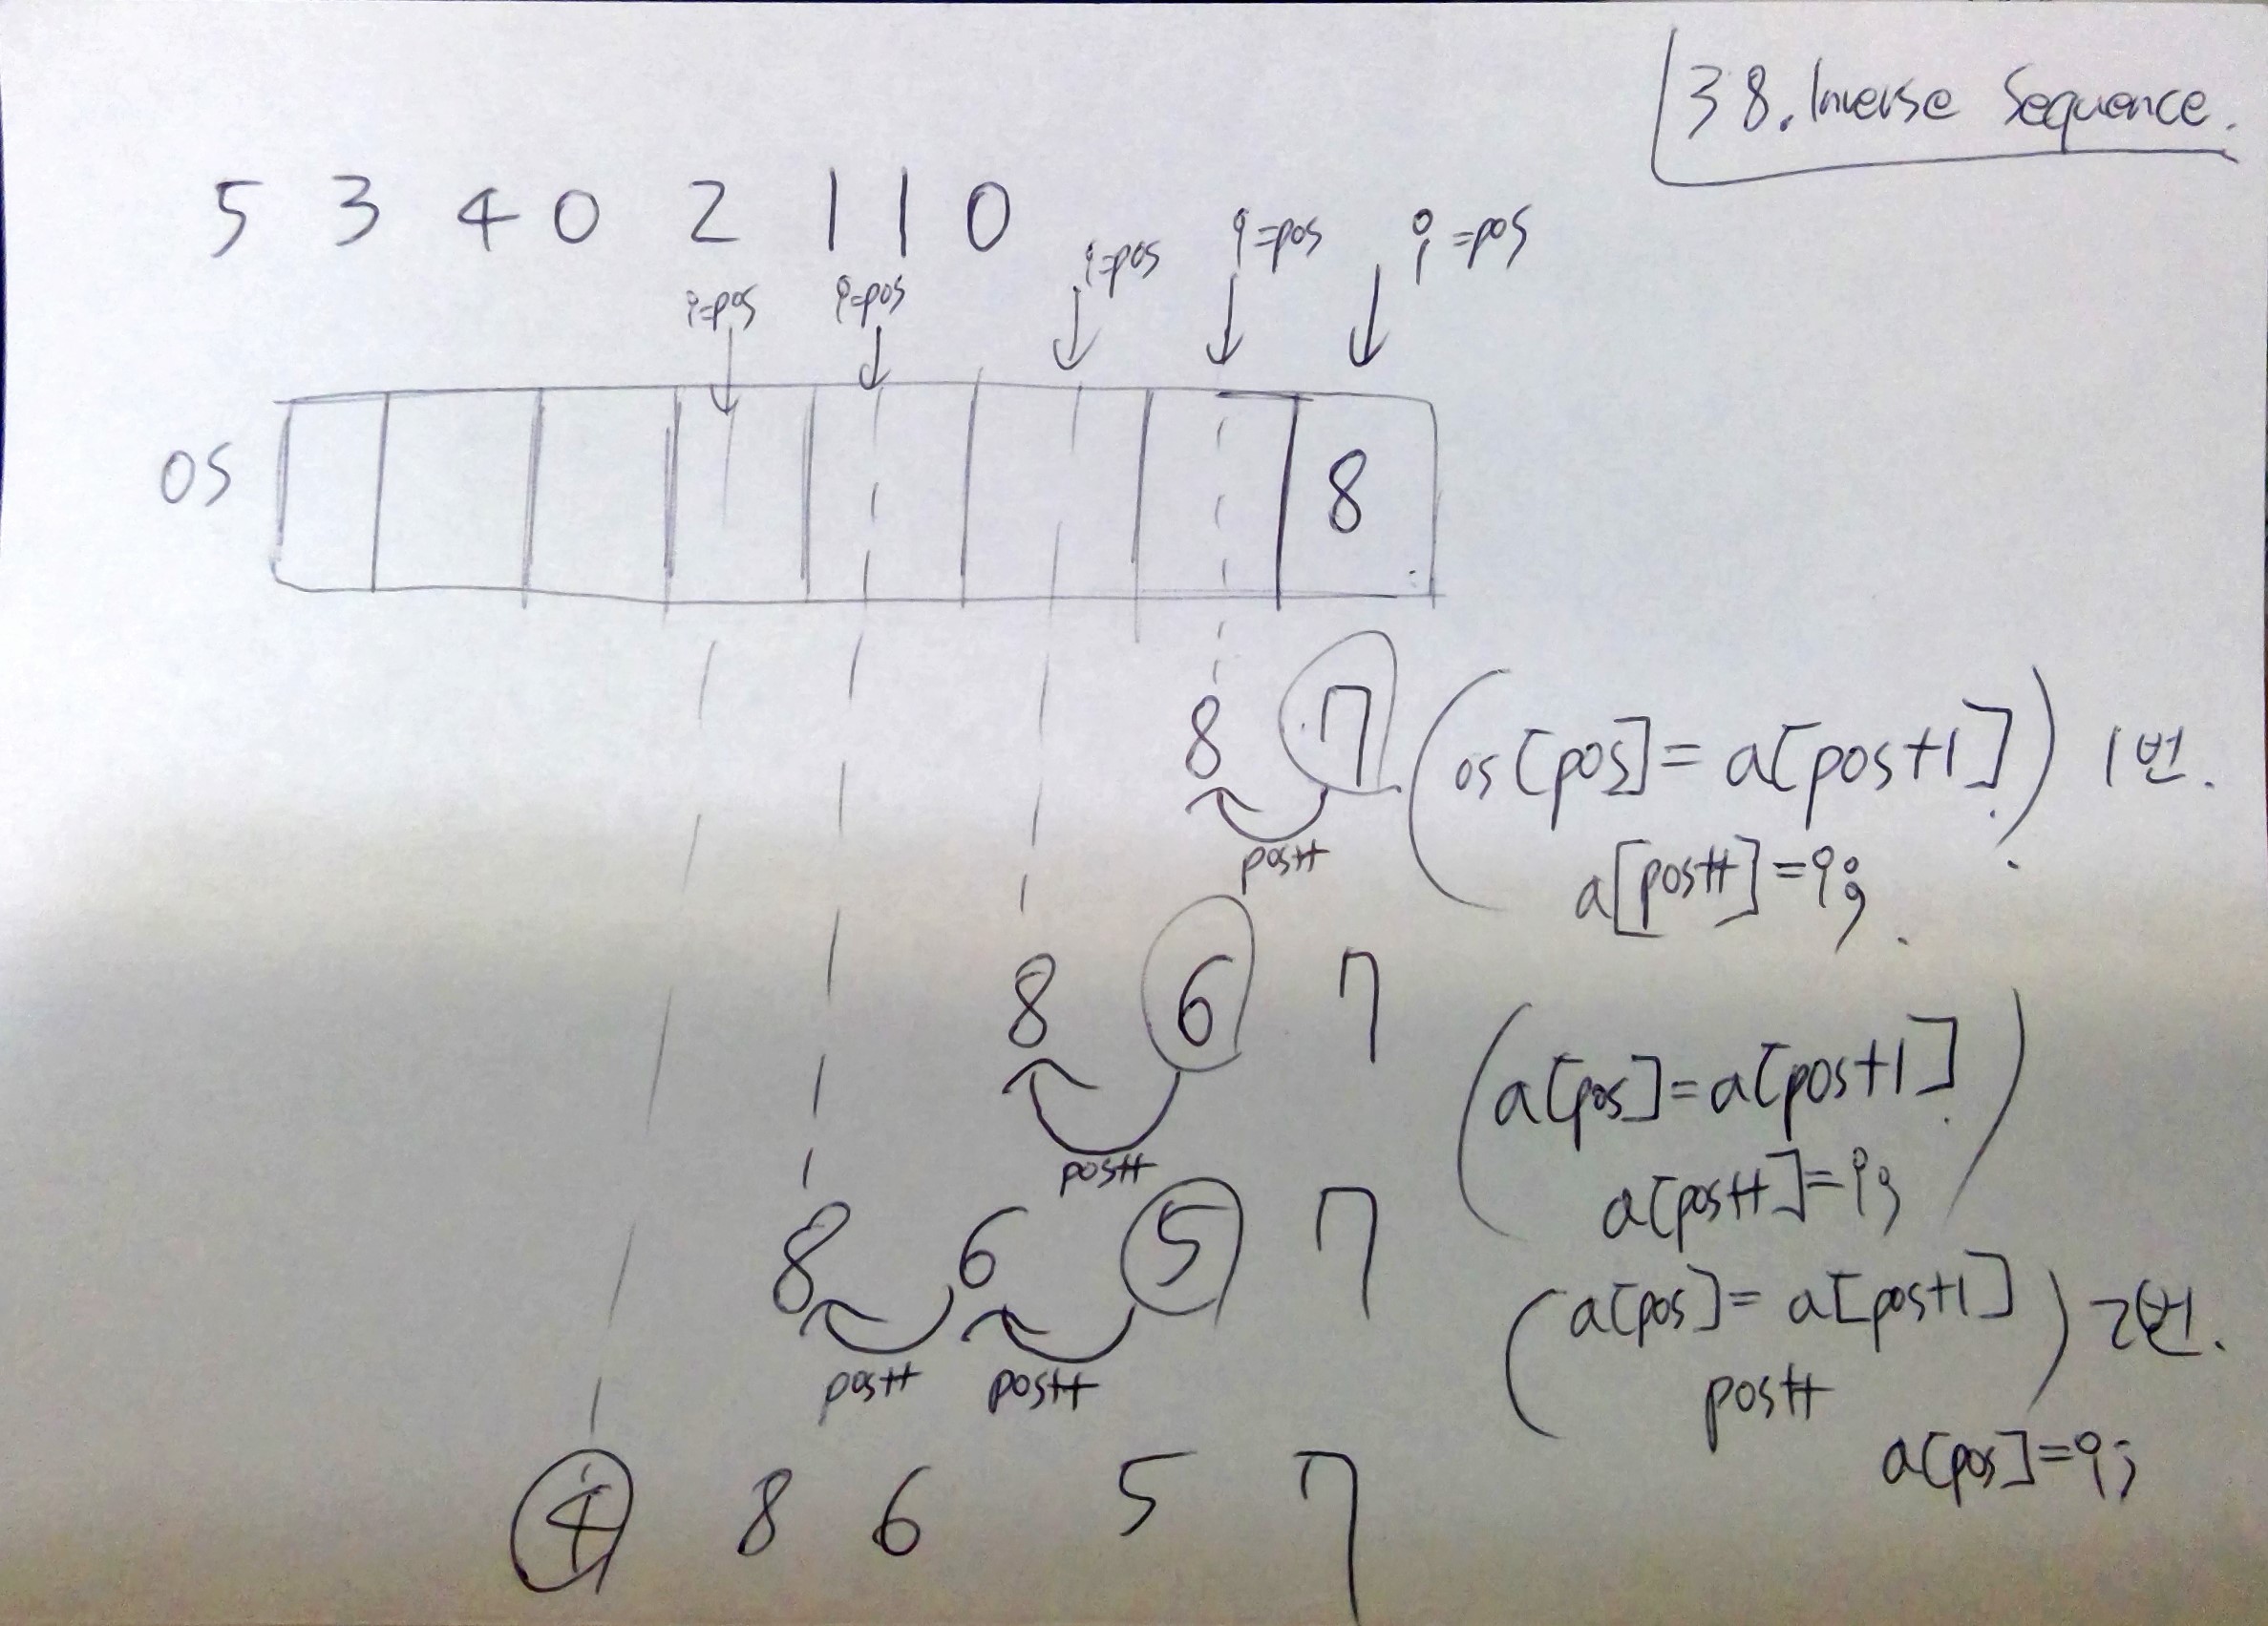 38. Inverse Sequence.
5 3 4 0 2 1 1 0
i=pos i=pos i=pos i=pos i=pos
os 8
8 7 (os[pos]= a[pos+1]) 1번.
pos++ a[pos++]=i;
8 6 7 (a[pos]=a[pos+1])
pos++ a[pos++]=i;
8 6 5 7 (a[pos]= a[pos+1]) 2번.
pos++ pos++ pos++
a[pos]=i;
4 8 6 5 7